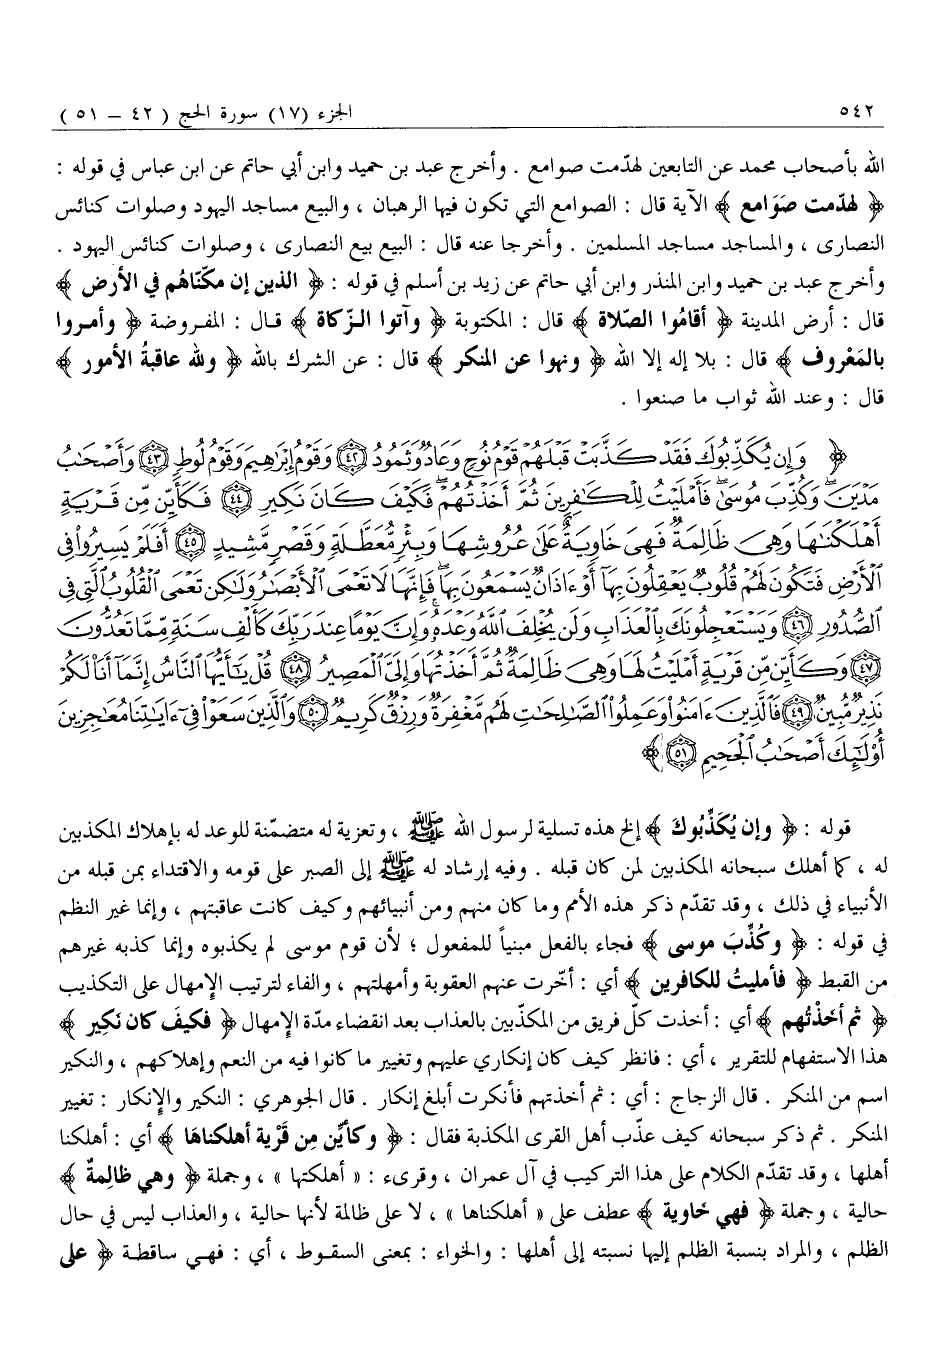 ٥٤٢ الجزء (١٧) سورة الحج ( ٤٢ – ٥١ )
الله بأصحاب محمد عن التابعين لهدّمت صوامع . وأخرج عبد بن حميد وابن أبي حاتم عن ابن عباس في قوله :
﴿ لهدّمت صَوَامع ﴾ الآية قال : الصوامع التي تكون فيها الرهبان ، والبيع مساجد اليهود وصلوات كنائس
النصارى ، والمساجد مساجد المسلمين . وأخرجا عنه قال : البيع بيع النصارى ، وصلوات كنائس اليهود .
وأخرج عبد بن حميد وابن المنذر وابن أبي حاتم عن زيد بن أسلم في قوله : ﴿ الذين إن مكّنّاهُم في الأرض ﴾
قال : أرض المدينة ﴿ أقامُوا الصّلاة ﴾ قال : المكتوبة ﴿ وآتوا الزّكاة ﴾ قال : المفروضة ﴿ وأمروا
بالمَعْروف ﴾ قال : بلا إله إلا الله ﴿ ونهوا عن المنكر ﴾ قال : عن الشرك بالله ﴿ ولله عاقبةُ الأمور ﴾
قال : وعند الله ثواب ما صنعوا .
﴿ وَإِن يُكَذِّبُوكَ فَقَدْ كَذَّبَتْ قَبْلَهُمْ قَوْمُ نُوحٍ وَعَادٌ وَثَمُودُ ٤٢ وَقَوْمُ إِبْرَاهِيمَ وَقَوْمُ لُوطٍ ٤٣ وَأَصْحَابُ
مَدْيَنَ ۖ وَكُذِّبَ مُوسَىٰ فَأَمْلَيْتُ لِلْكَافِرِينَ ثُمَّ أَخَذْتُهُمْ ۖ فَكَيْفَ كَانَ نَكِيرِ ٤٤ فَكَأَيِّن مِّن قَرْيَةٍ
أَهْلَكْنَاهَا وَهِيَ ظَالِمَةٌ فَهِيَ خَاوِيَةٌ عَلَىٰ عُرُوشِهَا وَبِئْرٍ مُّعَطَّلَةٍ وَقَصْرٍ مَّشِيدٍ ٤٥ أَفَلَمْ يَسِيرُوا فِي
الْأَرْضِ فَتَكُونَ لَهُمْ قُلُوبٌ يَعْقِلُونَ بِهَا أَوْ ءَاذَانٌ يَسْمَعُونَ بِهَا ۖ فَإِنَّهَا لَا تَعْمَى الْأَبْصَارُ وَلَٰكِن تَعْمَى الْقُلُوبُ الَّتِي فِي
الصُّدُورِ ٤٦ وَيَسْتَعْجِلُونَكَ بِالْعَذَابِ وَلَن يُخْلِفَ اللَّهُ وَعْدَهُ ۚ وَإِنَّ يَوْمًا عِندَ رَبِّكَ كَأَلْفِ سَنَةٍ مِّمَّا تَعُدُّونَ
٤٧ وَكَأَيِّن مِّن قَرْيَةٍ أَمْلَيْتُ لَهَا وَهِيَ ظَالِمَةٌ ثُمَّ أَخَذْتُهَا وَإِلَيَّ الْمَصِيرُ ٤٨ قُلْ يَٰأَيُّهَا النَّاسُ إِنَّمَا أَنَا لَكُمْ
نَذِيرٌ مُّبِينٌ ٤٩ فَالَّذِينَ ءَامَنُوا وَعَمِلُوا الصَّالِحَاتِ لَهُم مَّغْفِرَةٌ وَرِزْقٌ كَرِيمٌ ٥٠ وَالَّذِينَ سَعَوْا فِي ءَايَاتِنَا مُعَاجِزِينَ
أُولَٰئِكَ أَصْحَابُ الْجَحِيمِ ٥١ ﴾
قوله : ﴿ وإن يُكَذِّبُوكَ ﴾ إلخ هذه تسلية لرسول الله ﷺ ، وتعزية له متضمّنة للوعد له بإهلاك المكذبين
له ، كما أهلك سبحانه المكذبين لمن كان قبله . وفيه إرشاد له ﷺ إلى الصبر على قومه والاقتداء بمن قبله من
الأنبياء في ذلك ، وقد تقدّم ذكر هذه الأمم وما كان منهم ومن أنبيائهم وكيف كانت عاقبتهم ، وإنما غير النظم
في قوله : ﴿ وكُذِّبَ موسى ﴾ فجاء بالفعل مبنياً للمفعول ؛ لأن قوم موسى لم يكذبوه وإنما كذبه غيرهم
من القبط ﴿ فأمليتُ للكافرين ﴾ أي : أخّرت عنهم العقوبة وأمهلتهم ، والفاء لترتيب الإمهال على التكذيب
﴿ ثم أخَذْتُهم ﴾ أي : أخذت كلّ فريق من المكذّبين بالعذاب بعد انقضاء مدّة الإمهال ﴿ فكيفَ كان نَكِير ﴾
هذا الاستفهام للتقرير ، أي : فانظر كيف كان إنكاري عليهم وتغيير ما كانوا فيه من النعم وإهلاكهم ، والنكير
اسم من المنكر . قال الزجاج : أي : ثم أخذتهم فأنكرت أبلغ إنكار . قال الجوهري : النكير والإنكار : تغيير
المنكر . ثم ذكر سبحانه كيف عذّب أهل القرى المكذبة فقال : ﴿ وكأيِّن مِن قَرْية أهلكناهَا ﴾ أي : أهلكنا
أهلها ، وقد تقدّم الكلام على هذا التركيب في آل عمران ، وقرىء : « أهلكتها » ، وجملة ﴿ وهي ظالِمةٌ ﴾
حالية ، وجملة ﴿ فهي خَاوية ﴾ عطف على « أهلكناها » ، لا على ظالمة لأنها حالية ، والعذاب ليس في حال
الظلم ، والمراد بنسبة الظلم إليها نسبته إلى أهلها : والخواء : بمعنى السقوط ، أي : فهي ساقطة ﴿ على